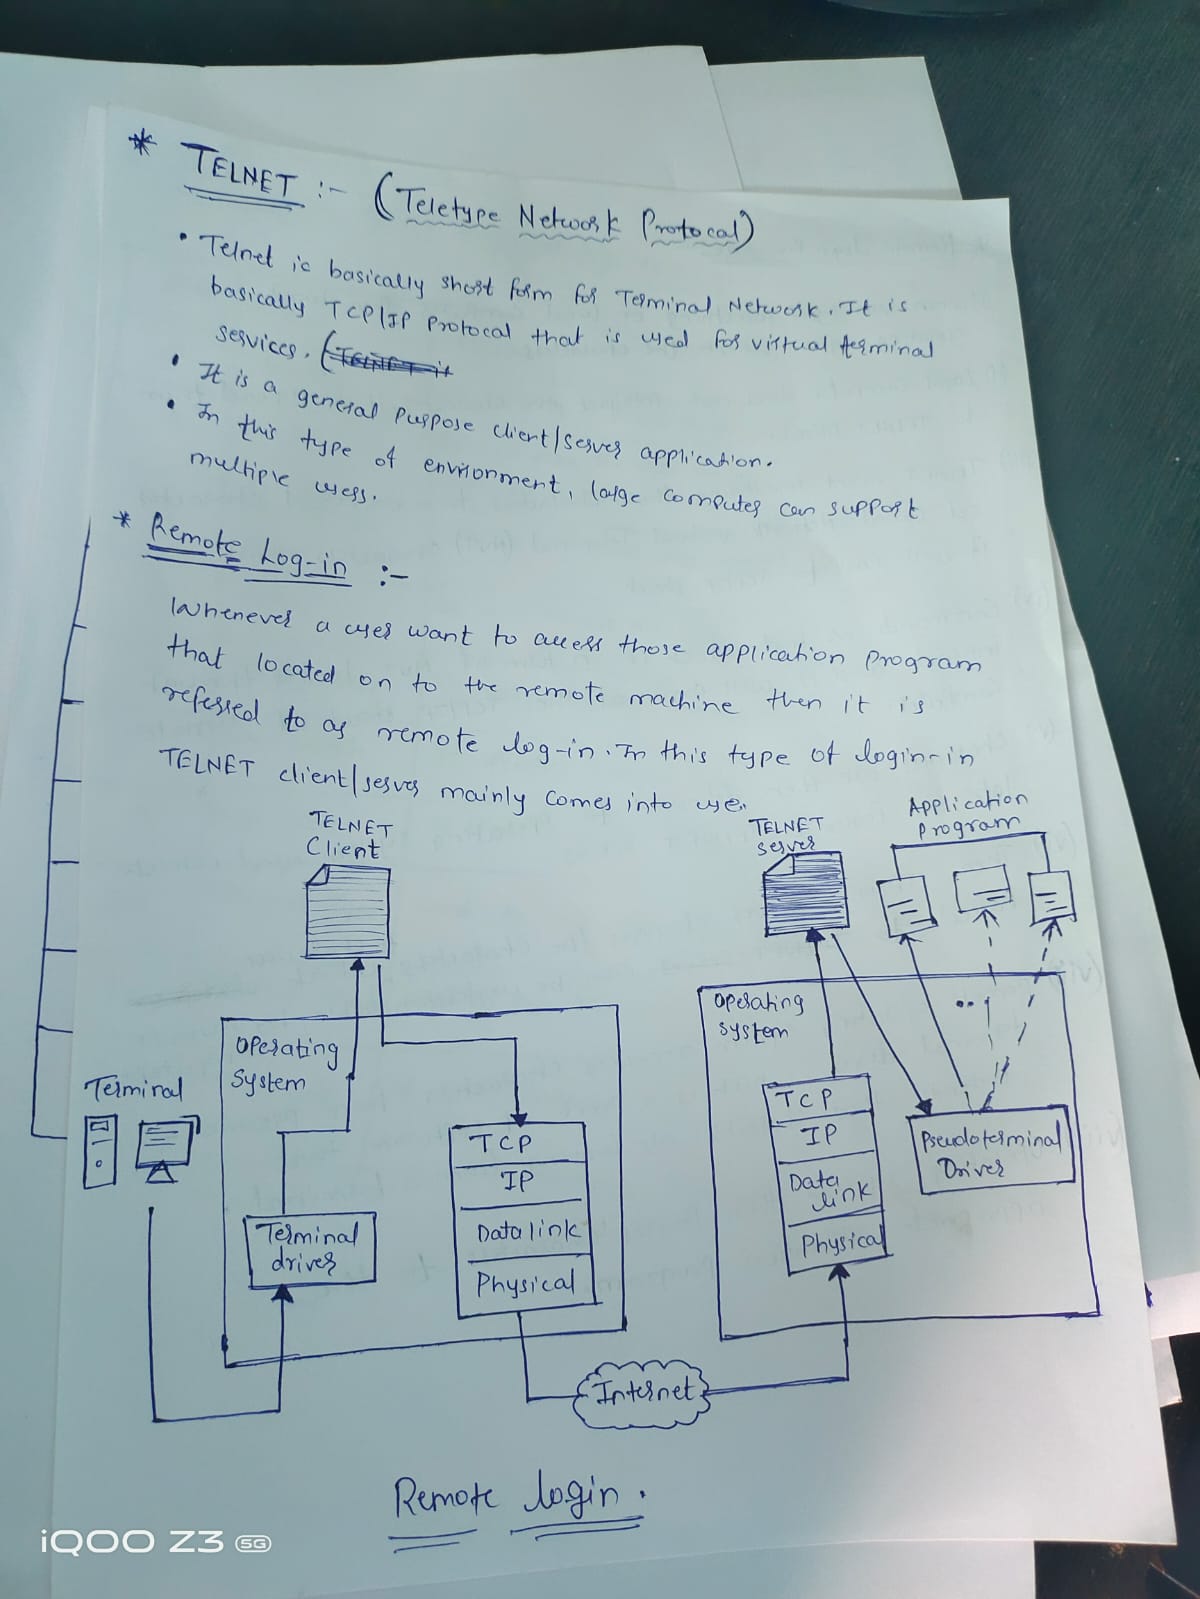 * TELNET :- (Teletype Network Protocal)
• Telnet is basically short form for Terminal Network. It is
basically TCP/IP Protocal that is used for virtual terminal
services. (TELNET it
• It is a general purpose client/server application.
• In this type of environment, large computer can support
multiple user.
* Remote Log-in :-
Whenever a user want to access those application program
that located on to the remote machine then it is
referred to as remote log-in. In this type of login-in
TELNET client/server mainly comes into use.
TELNET
Client
TELNET
server
Application
Program
Operating
System
Operating
System
Terminal
Terminal
driver
TCP
IP
Data link
Physical
TCP
IP
Data
link
Physical
Pseudoterminal
Driver
Internet
Remote login.
iQOO Z3 5G